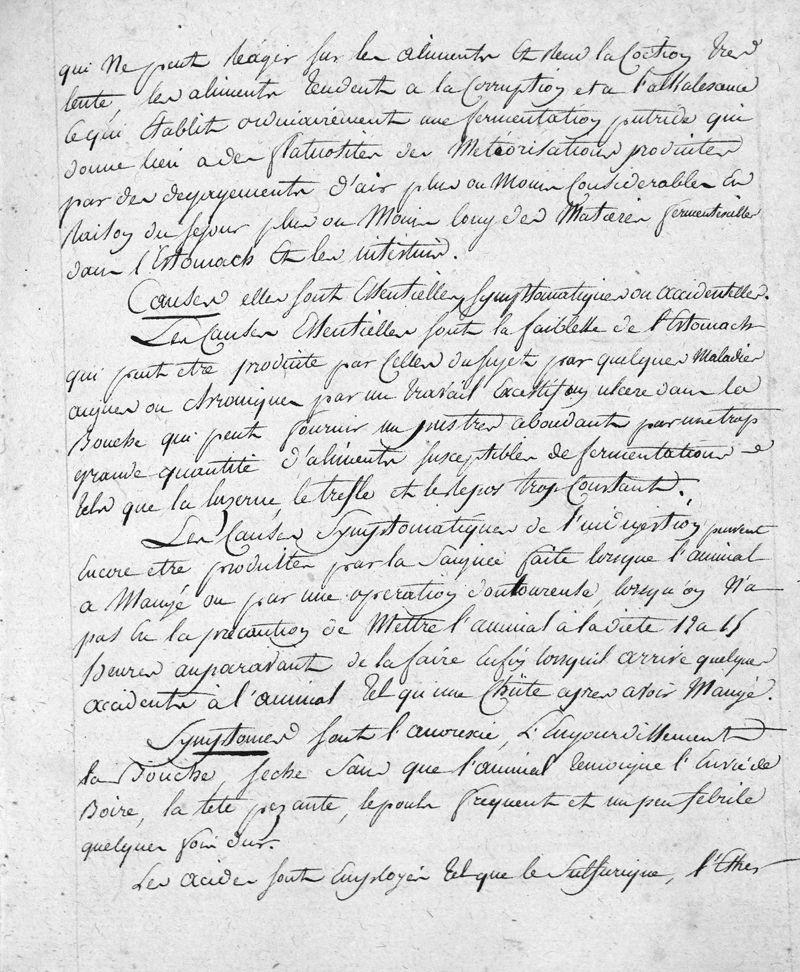 qui ne peut réagir sur les aliments et rend la Coction tres
lente, les aliments tendent a la Corruption et a l'alkalesance
ce qui Etablit ordinairement une fermentation putride qui
donne lieu a des flatuosites des Météorisations produites
par des degagements d'air plus ou Moins Considerables En
Raison du sejour plus ou Moins long des Matieres fermentiscibles
dans l'Estomach Et les intestins.
Causes elles sont Essentielles, Symptomatiques ou accidentelles.
Les Causes Essentielles sont la faiblesse de l'Estomach
qui peut etre produite par Celles du sujet par quelques Maladies
aigues ou chroniques par un travail Excessif ou ulcere dans la
Bouche qui peut fournir un abondant par une trop
grande quantité d'aliments susceptibles de fermentations
tels que la luzerne, le trefle et le repos trop Constant.
Les Causes Symptomatiques de l'indigestion peuvent
Encore etre produites par la Saignée faite lorsque l'animal
a Mangé ou par une operation douloureuse, lorsqu'on N'a
pas Eu la précaution de Mettre l'animal à la diete 12 a 15
heures auparavant de la faire Enfin lorsquil arrive quelques
accidents à l'animal tel qu'une Chûte apres avoir Mangé.
Symptomes sont l'anorexie, L'Engourdissement
la Bouche, seche Sans que l'animal temoigne l'Envie de
Boire, la tete pezante, le pouls frequent et un peu febrile
quelques fois dur.
Les acides sont Employés tel que le Sulfurique, l'Ether